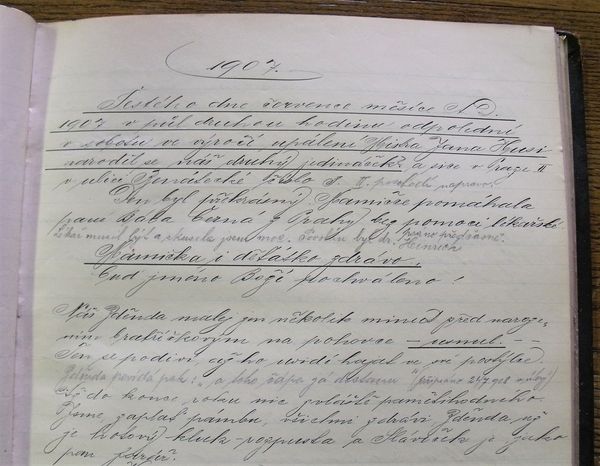 1907.
Šestého dne července měsíce A.D.
1907 v půl druhou hodinu odpolední
v sobotu ve výročí upálení Mistra Jana Husi
narodil se náš druhý jedináček a sice v Praze II
v ulici Benátecké číslo II. poschodí napravo.
Den byl překrásný. Mamičce pomáhala
paní Bába Černá z Prahy bez pomoci lékařské
Lékař musel být a zkusila jsem moc. dr. Heinrich
psáno později
Mámička i děťátko zdrávo.
Buď jméno Boží pochváleno!
Náš Zdenda malej jen několik minut před naroze-
ním bratříčkovým na pohovce – usnul. –
Ten se podiví až ho uvidí hajat v své postýlce.
Zdenda povídá pak: „a toho čápa já dostanu“
Až do konce roku nic zvláště pamětihodného.
Jsme zaplať pámbu, všichni zdrávi, Zdenda už
je hotový kluk rozpusta a Slávíček je jako
pan farář.